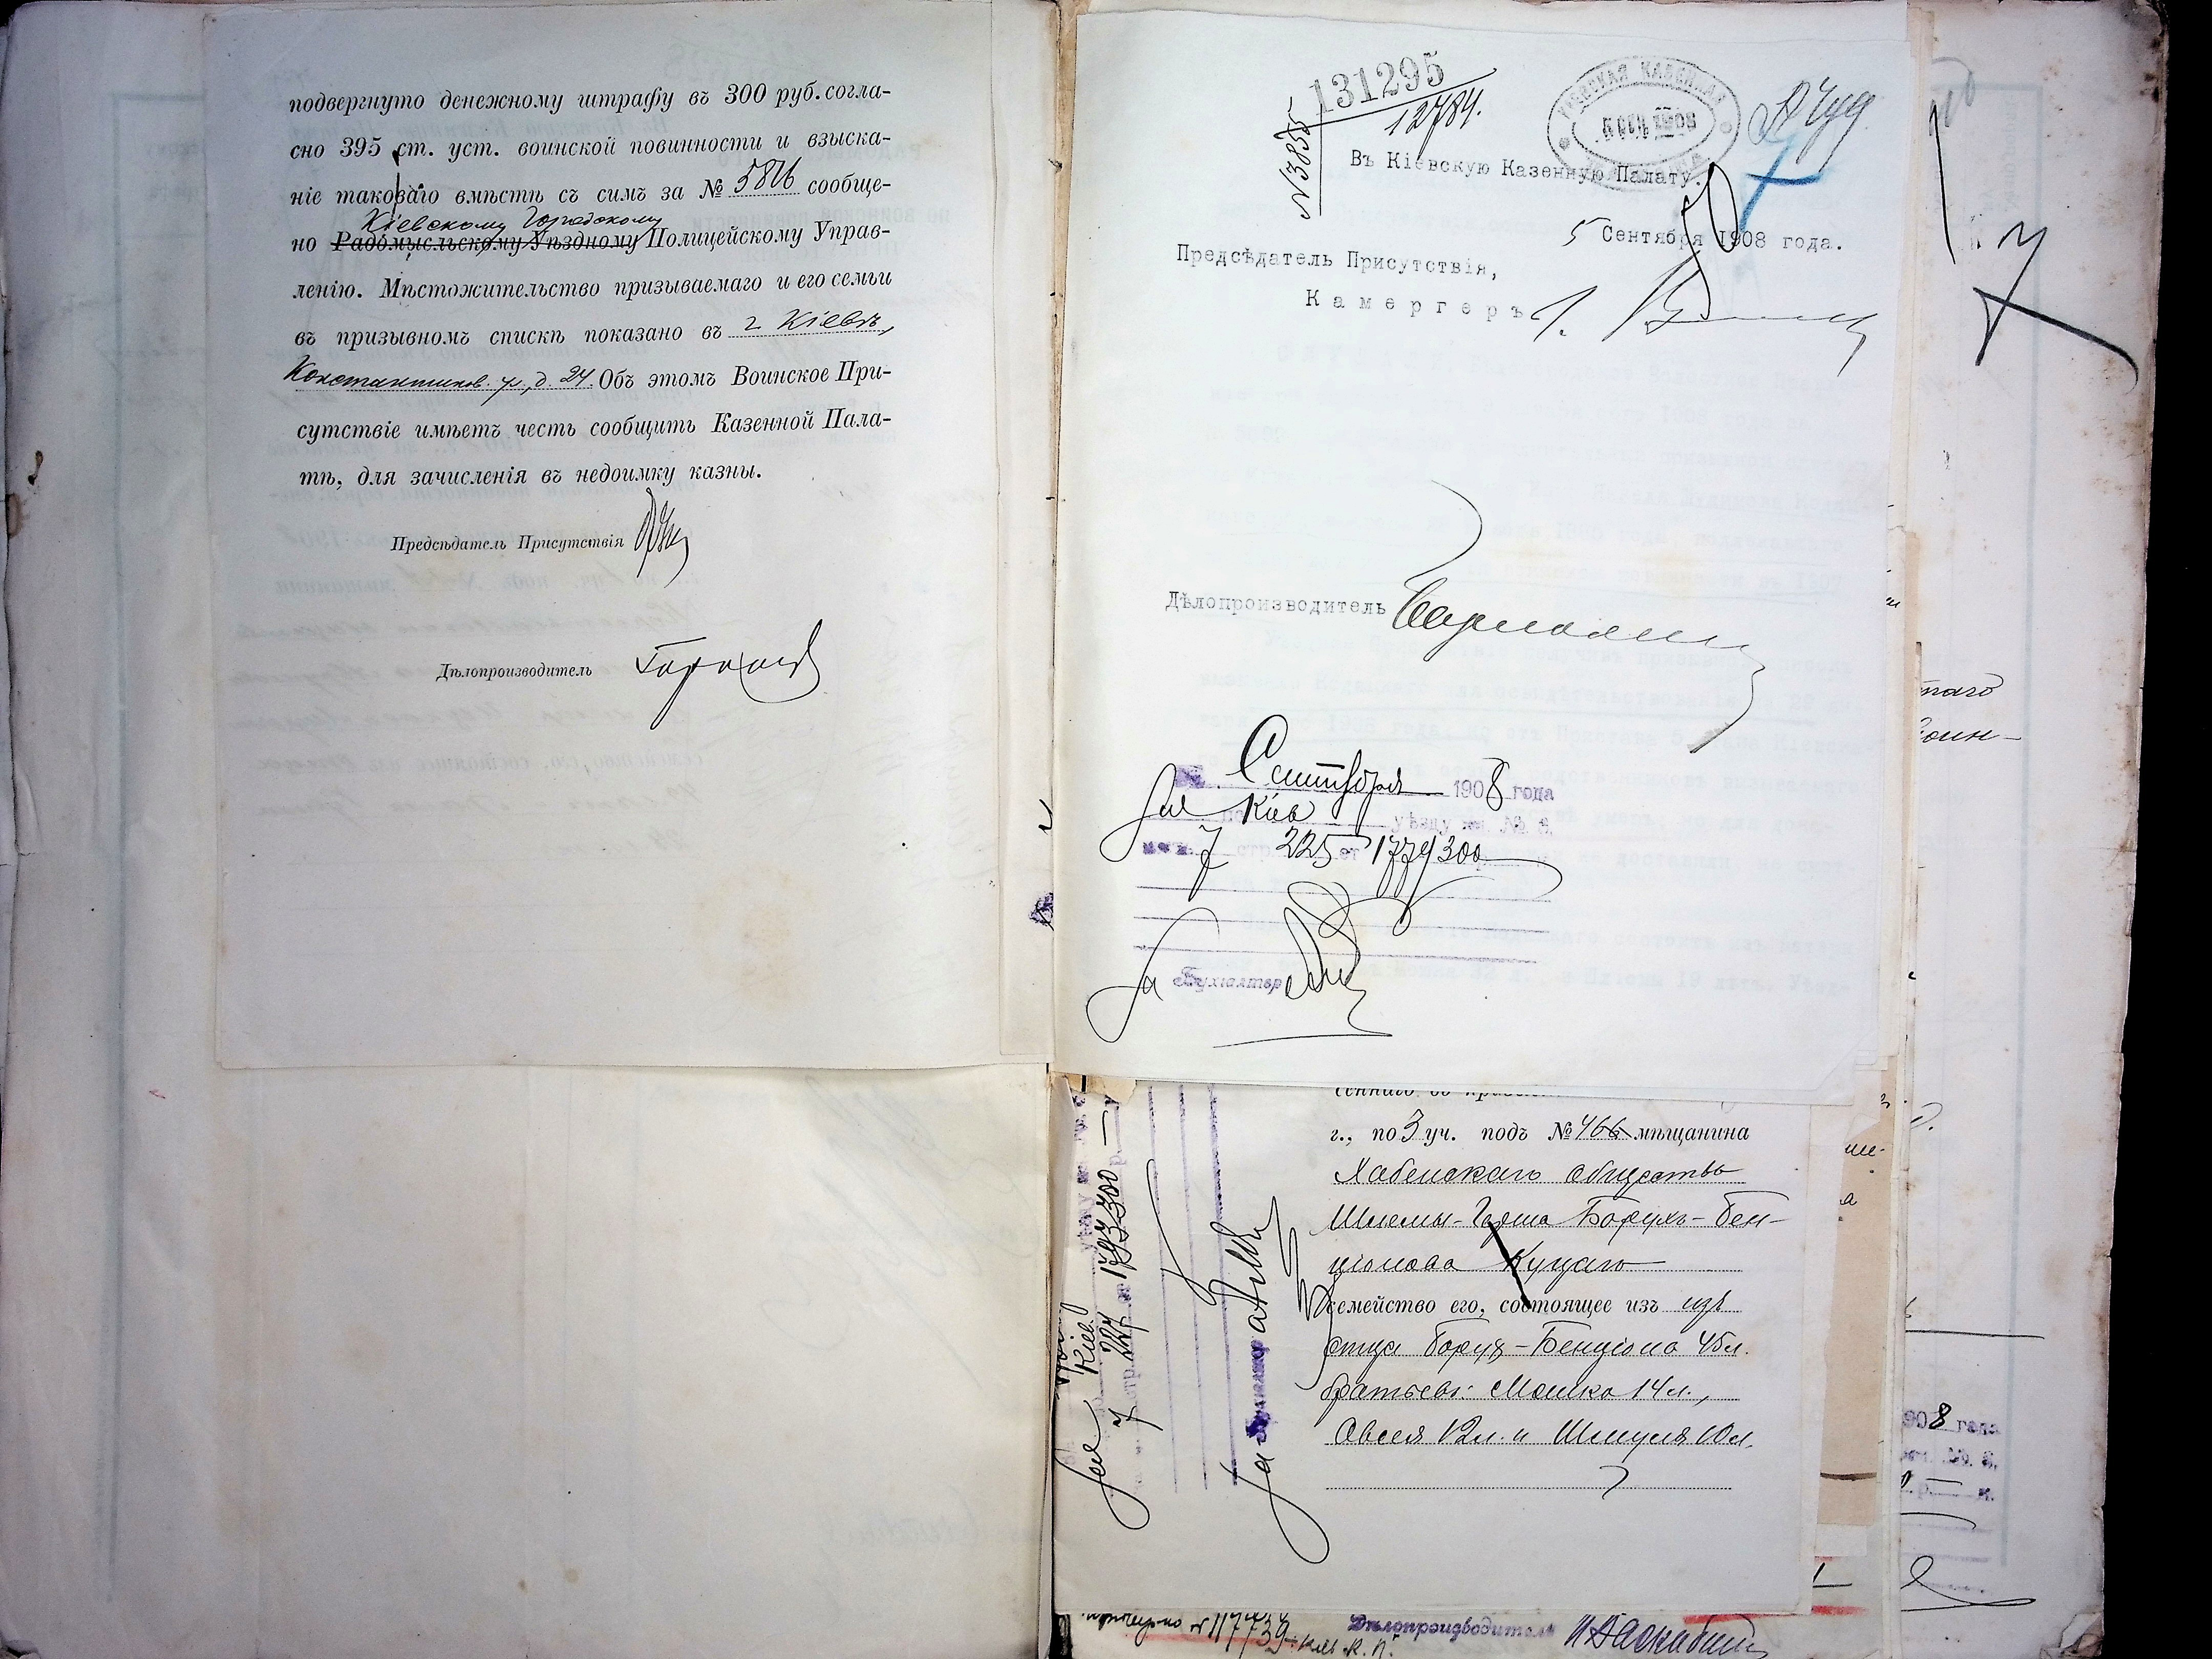 подвергнуто денежному штрафу въ 300 руб. согла-
сно 395 ст. уст. воинской повинности и взыска-
ніе таковаго вмѣстѣ съ симъ за № 5816 сообще-
Кіевскому Городскому
но Радомысльскому Уѣздному Полицейскому Управ-
ленію. Мѣстожительство призываемаго и его семьи
въ призывномъ спискѣ показано въ г. Кіевѣ,
Константинов. ул., д. 24. Объ этомъ Воинское При-
сутствіе имѣетъ честь сообщить Казенной Пала-
тѣ, для зачисленія въ недоимку казны.
Предсѣдатель Присутствія
Дѣлопроизводитель
131295
12784.
№ 3855
КІЕВСКАЯ КАЗЕННАЯ
Въ Кіевскую Казенную Палату.
5 Сентября 1908 года.
Предсѣдатель Присутствія,
Камергеръ
Дѣлопроизводитель
Сентября 1908 года
Кіев уѣзду кн. № 2.
7 стр. 225 ст 1779 300
За Бухгалтер
г., по 3 уч. подъ № 466 мѣщанина
Хабенскаго общества
Шлемы-Герша Борухъ-Бен-
ціонова Куцаго
семейство его, состоящее изъ изъ
отца Борух-Бенціона 45 л.
братьевъ: Мошко 14 л.,
Овсея 12 л. и Шмуля 10 л.
Кіев.
7 стр. 227 1793 300
За Бухгалтер
№ 117739
Дѣлопроизводитель
таго
оин-
908 года